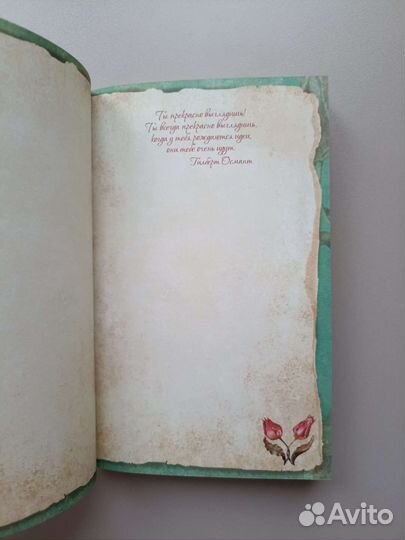 Ты прекрасно выглядишь!
Ты всегда прекрасно выглядишь,
когда у тебя рождаются идеи,
они тебе очень идут.
Гилберт Осмонт
Avito